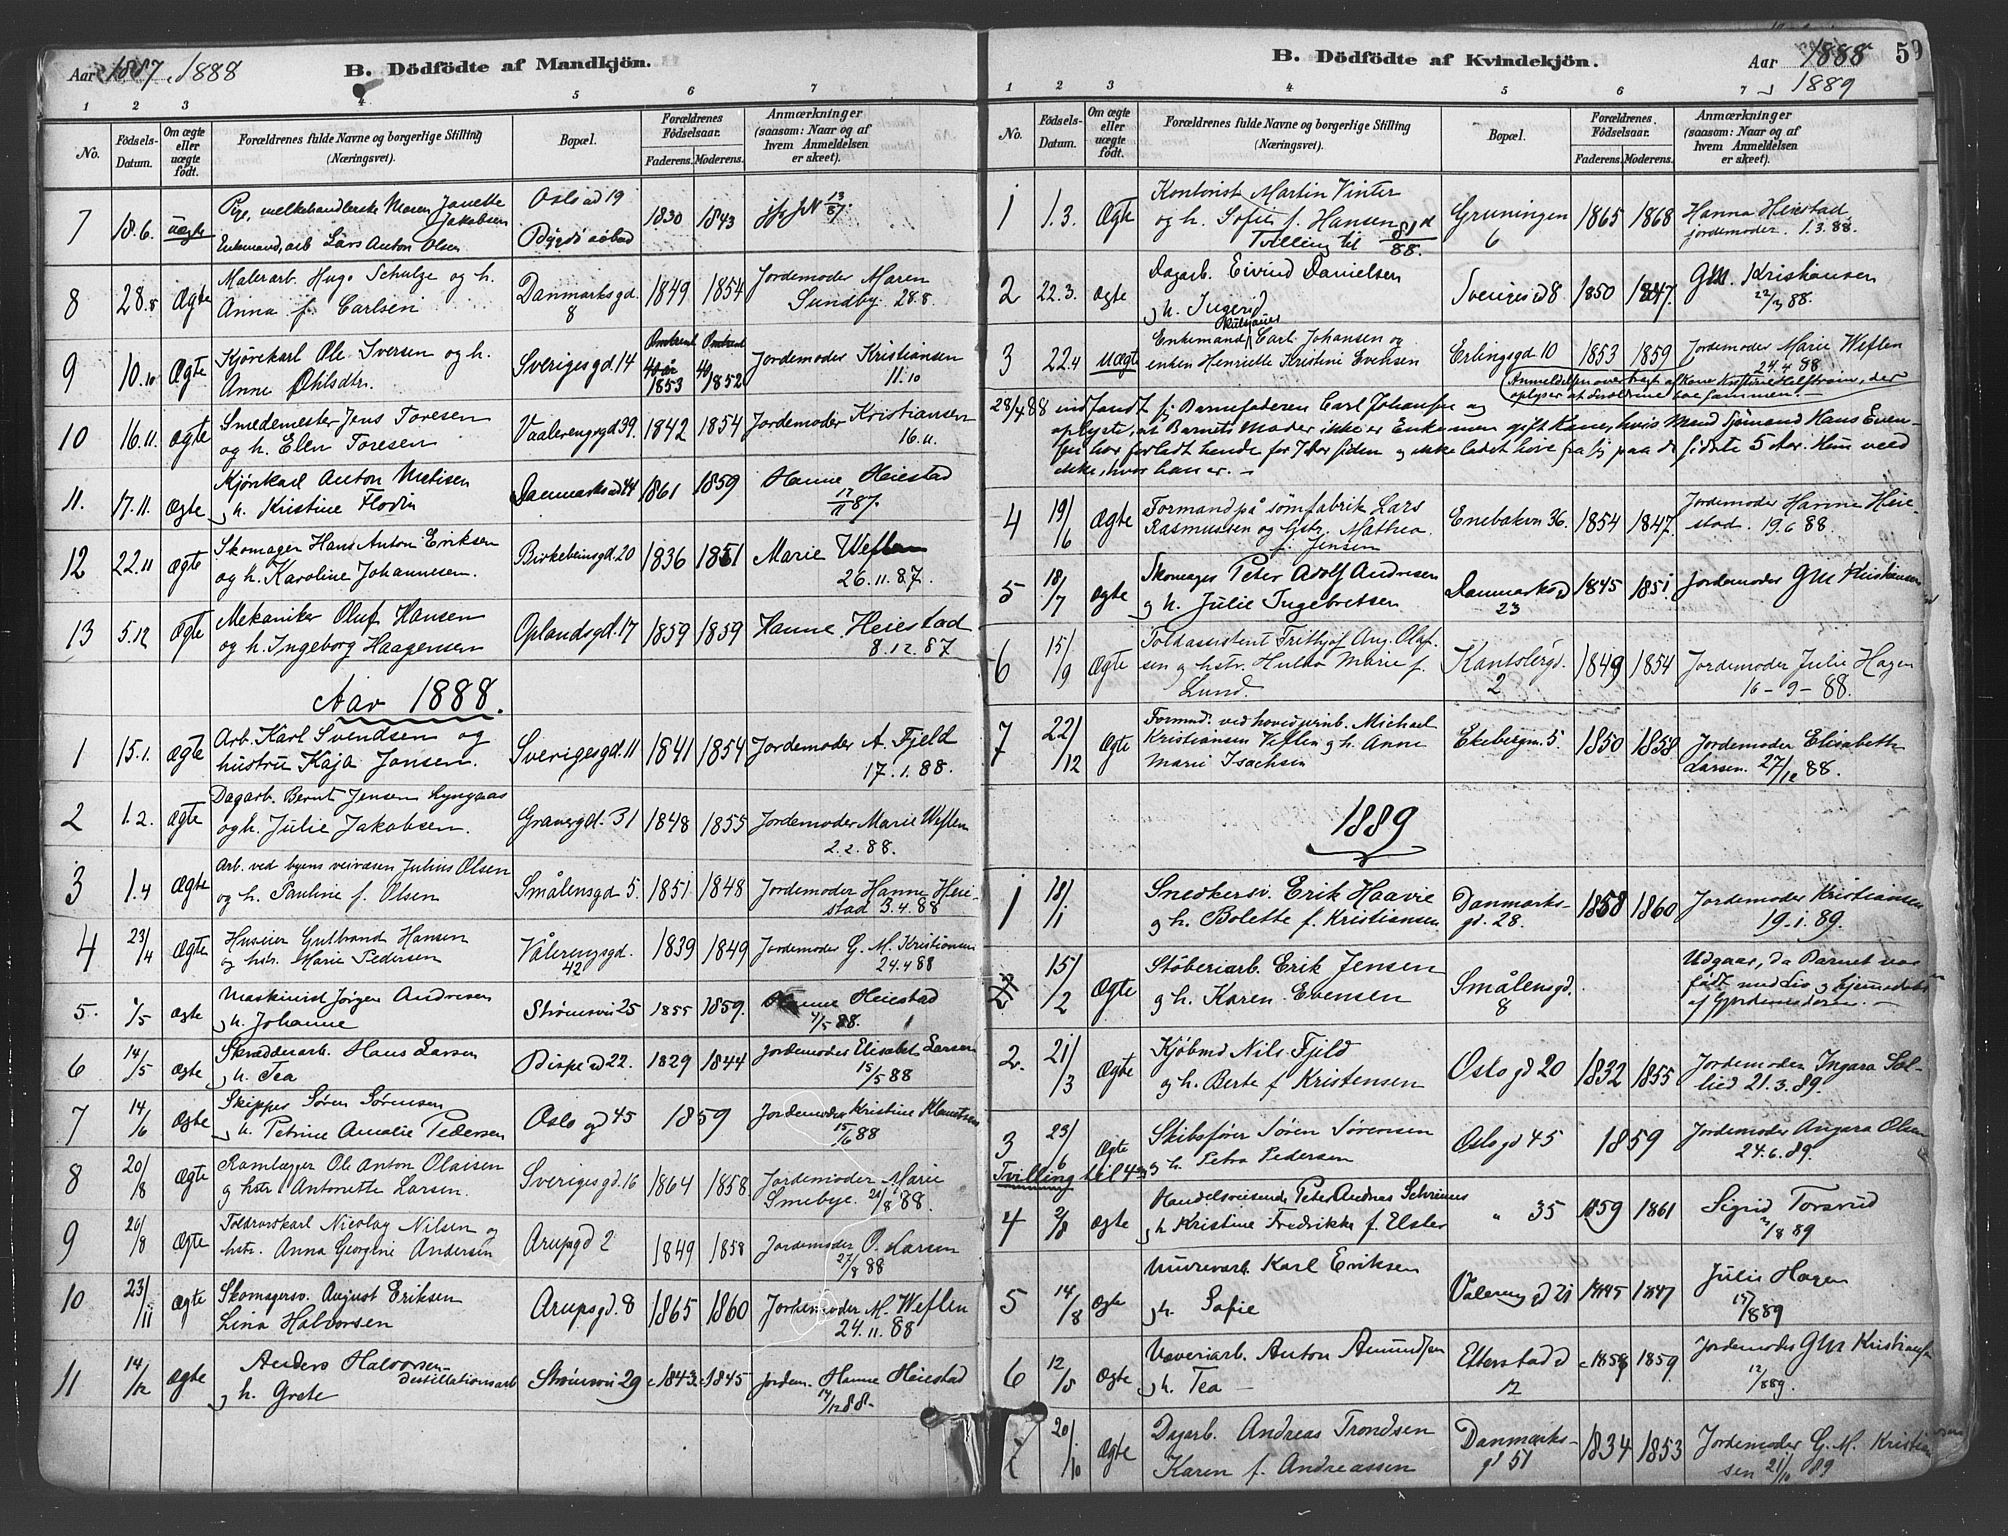 Aar 1887, 1888
B. Dödfödte af Mandkjön.
1 2 3 4 5 6 7
No.
Födsels-Datum.
Om ægte eller uægte födt.
Forældrenes fulde Navne og borgerlige Stilling (Næringsvei).
Bopæl.
Forældrenes Födselsaar.
Faderens. Moderens.
Anmærkninger (saasom: Naar og af hvem Anmeldelsen er skeet).
7 18.6. uægte Pige, melkehandlerske Maren Janette Jakobsen Oslogd 19 1830 1843
Enkemand, arb Lars Anton Olsen
8 28.8 Ægte Malerarb. Hugo Schulze og h. Danmarksgd. 1849 1854 Jordemoder Maren
Anna f. Carlsen 8 Sundby. 28.8
9 10.10 Ægte Kjørekarl Ole Iversen og h. Sverigesgd. 14 1853 1852 Jordemoder Kristiansen
Anne Ohlsdtr. 11.10
10 16.11. ægte Smedemester Jens Toresen Vaalerengsgd 39. 1842 1854 Jordemoder Kristiansen
og h. Elen Toresen 16.11.
11. 17.11. Ægte Kjørekarl Anton Danmarksgd 44 1861 1859 Hanne Heiestad
h. Kristine 17/11 87.
12 22.11 ægte Skomager Hans Anton Eriksen Birkebeinsgd. 20 1836 1851 Marie Weflen
og h. Karoline Johannesen. 26.11.87.
13 5.12 Ægte Mekaniker Oluf Hansen Oplandsgd. 17 1859 1859 Hanne Heiestad
og h. Ingeborg Haagensen 8.12.87
Aar 1888.
1 15.1. ægte Arb. Karl Svendsen og Sverigesgd. 11 1841 1854 Jordemoder A. Fjeld
hustru Kaja Jansen. 17.1.88.
2 1.2. ægte Dagarb. Bernt Jensen Lyngaas Gravergd. 31 1848 1855 Jordemoder Marie Weflen
og h. Julie Jakobsen. 2.2.88.
3 1.4 Ægte Arb. ved byens veivæsen Julius Olsen Smålensgd 5. 1851 1848 Jordemoder Hanne Heie-
og h. Pauline f. Olsen stad 3.4.88
4 23/4 Ægte Huseier Gulbrand Hansen Vålerengsgd. 1839 1849 Jordemoder G. M. Kristiansen
og hstr. Marie Pedersen 42 24.4 88
5. /5 ægte Maskinist Jørgen Andresen Strømsvei 25 1855 1859. Hanne Heiestad
h. Johanne 4/5 88.
6 14/5 ægte Skrædderarb. Hans Larsen Bispegd 22. 1829 1844 Jordemoder Elisabet Larsen
h. Tea 15/5 88
7 14/6 ægte Skipper Søren Sørensen Oslogd 45 1859 Jordemoder Kristine
h. Petrine Amalie Pedersen 15/6 88
8 20/8 Ægte Ole Anton Olaisen Sverigesgd. 16 1864 1858 Jordemoder Marie
og hstr. Antonette Larsen. Smebye. /8 88.
9 20/8 Ægte Nicolay Nilsen og Arupsgd 2 1849 1858 Jordemoder O. Larsen
hstr. Anna Georgine Andersen 27/8 88
10 23/11 ægte Skomagersv. August Eriksen Arupsgd. 8 1865 1860 Jordemoder M. Weflen
Lina Halvorsen 24.11.88
11 14/12 Ægte Anders Halvorsen destillationsarb Strømsvei 29 1843. 1845 Jordem. Hanne Heiestad
h. Grete 14/12 88.
B. Dödfödte af Kvindekjön.
Aar 1888
1889
59
1 2 3 4 5 6 7
No.
Födsels-Datum.
Om ægte eller uægte födt.
Forældrenes fulde Navne og borgerlige Stilling (Næringsvei).
Bopæl.
Forældrenes Födselsaar.
Faderens. Moderens.
Anmærkninger (saasom: Naar og af hvem Anmeldelsen er skeet).
1 1.3. Ægte Kontorist Martin Vinter Gruningen 1865 1868 Hanna Heiestad
og h. Sofie f. Hansen 6 jordemoder. 1.3.88.
Tvilling til 88.
2 22.3. ægte Dagarb. Eivind Danielsen Sverigesgd 8 1850 1847. GM. Kristiansen
h. Ingerid 22/3 88.
3 22.4 uægte Enkemand Carl Johansen og Erlingsgd. 10 1853 1859 Jordemoder Marie Weflen
enken Henriette Kristine Evensen 24.4 88
28/4 88 indfandt sig Barnefaderen Carl Johansen og
oplyste, at Barnets Moder ikke er Enke men gift Kone, hvis Mand Sjømand Hans Even-
sen har forladt hende for 7 Aar siden og ikke ladet høre fra sig paa de sidste 5 Aar. Hun veed
ikke, hvor han er. –
4 19/6 Ægte Formand på sømfabrik Lars Enebakvn 36. 1854 1847. Jordemoder Hanne Heie-
Rasmussen og hstr. Mathea stad. 19.6 88.
f. Jensen
5 18/7 ægte Skomager Peter Adolf Andresen Danmarksgd 1845 1851. Jordemoder GM Kristiansen
og h. Julie Ingebretsen 23
6 15/9 Ægte Toldassistent Frithjof Aug. Olaf- Kantslergd. 1849 1854 Jordemoder Julie Hagen
sen og hstr. Hulda Marie f. 2 16-9-88.
Lund.
7 22/12 Ægte Formd. ved hovedjernb. Michael Ekebergvn. 5. 1850 1858 Jordemoder Elisabeth
Kristiansen Veflen og h. Anne Larsen. 27/12 88.
Marie Isachsen
1889
1 18/1 Ægte Snedkersv. Erik Haavie Danmarks- 1858 1860 Jordemoder Kristiansen
og h. Bolette f. Kristiansen gd. 28. 19.1.89.
15/2 Ægte Støberiarb. Erik Jensen Smålensgd. Udgaar, da Barnet var
og h. Karen Evensen 8 født med Liv og hjemmedøbt
af Gjordemoderen. –
2. 21/3 Ægte Kjøbmd Nils Fjeld Oslogd 20 1832 1855 Jordemoder Ingara Sol-
og h. Berte f. Kristensen lied 21.3.89.
3 23/6 Ægte Skibsfører Søren Sørensen Oslogd 45 1859 Jordemoder Angara Olsen
h. Petra Pedersen 24.6.89.
Tvilling til 4
4 2/8 ægte Handelsreisende Peter Andreas Schreiner " 35 1859 1861 Sigrid Torsrud
h. Kristine Fredrikke f. Elster 2/8 89
5 14/8 ægte Murerarb. Karl Eriksen Valerengd 21 1845 1847 Julie Hagen
h. Sofie 15/8 89
6 12/8 ægte Væveriarb. Anton Amundsen Etterstadgd 1859 1859. Jordemoder GM Kristiansen
h. Tea – 12 12/8 89.
7 20/10 Ægte Dagarb. Andreas Trondsen Danmarks- 1834 1853 Jordemoder G. M. Kristian-
Karen f. Andreassen gd 51 sen 21/10 89